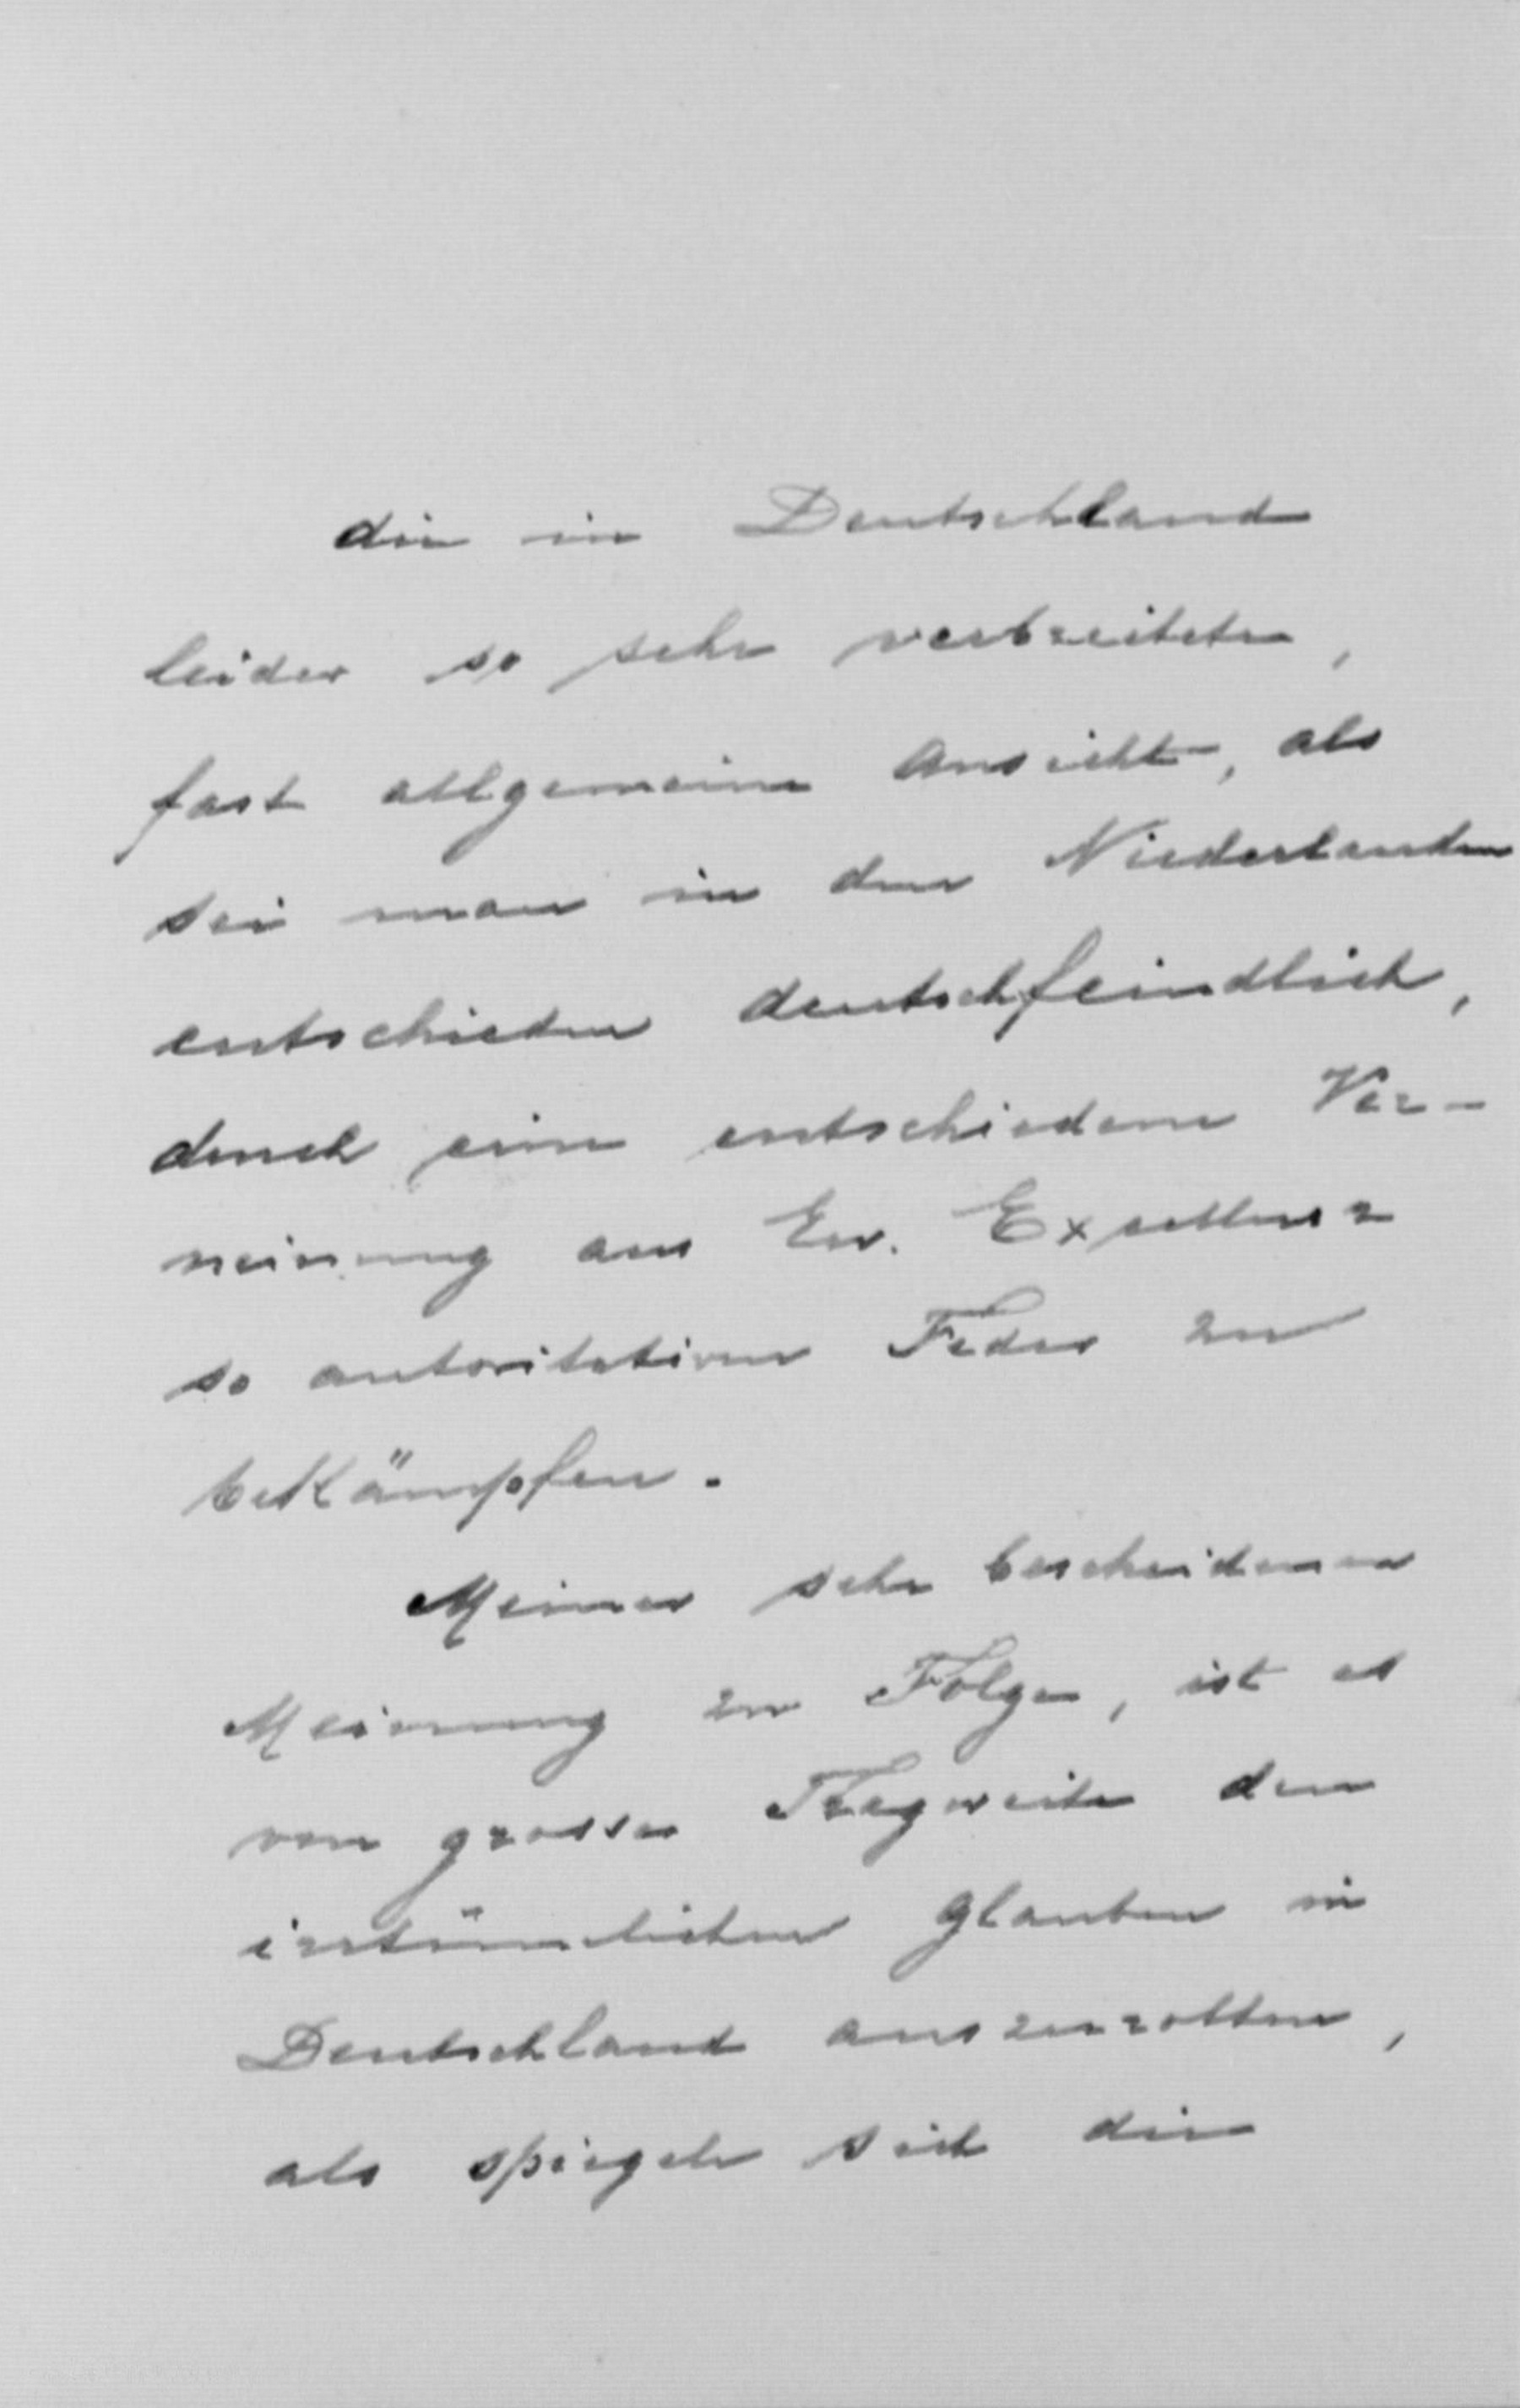 die in Deutschland
leider so sehr verbreitete,
fast allgemeine Ansicht, als
sei man in den Niederlanden
entschieden deutschfeindlich,
durch eine entschiedene Ver-
neinung aus Ew. Excellenz
so autoritativen Feder zu
bekämpfen.
Meiner sehr bescheidenen
Meinung zu Folge, ist es
von grosser Tragweite den
irrtümlichen Glauben in
Deutschland auszurotten,
als spiegele sich die